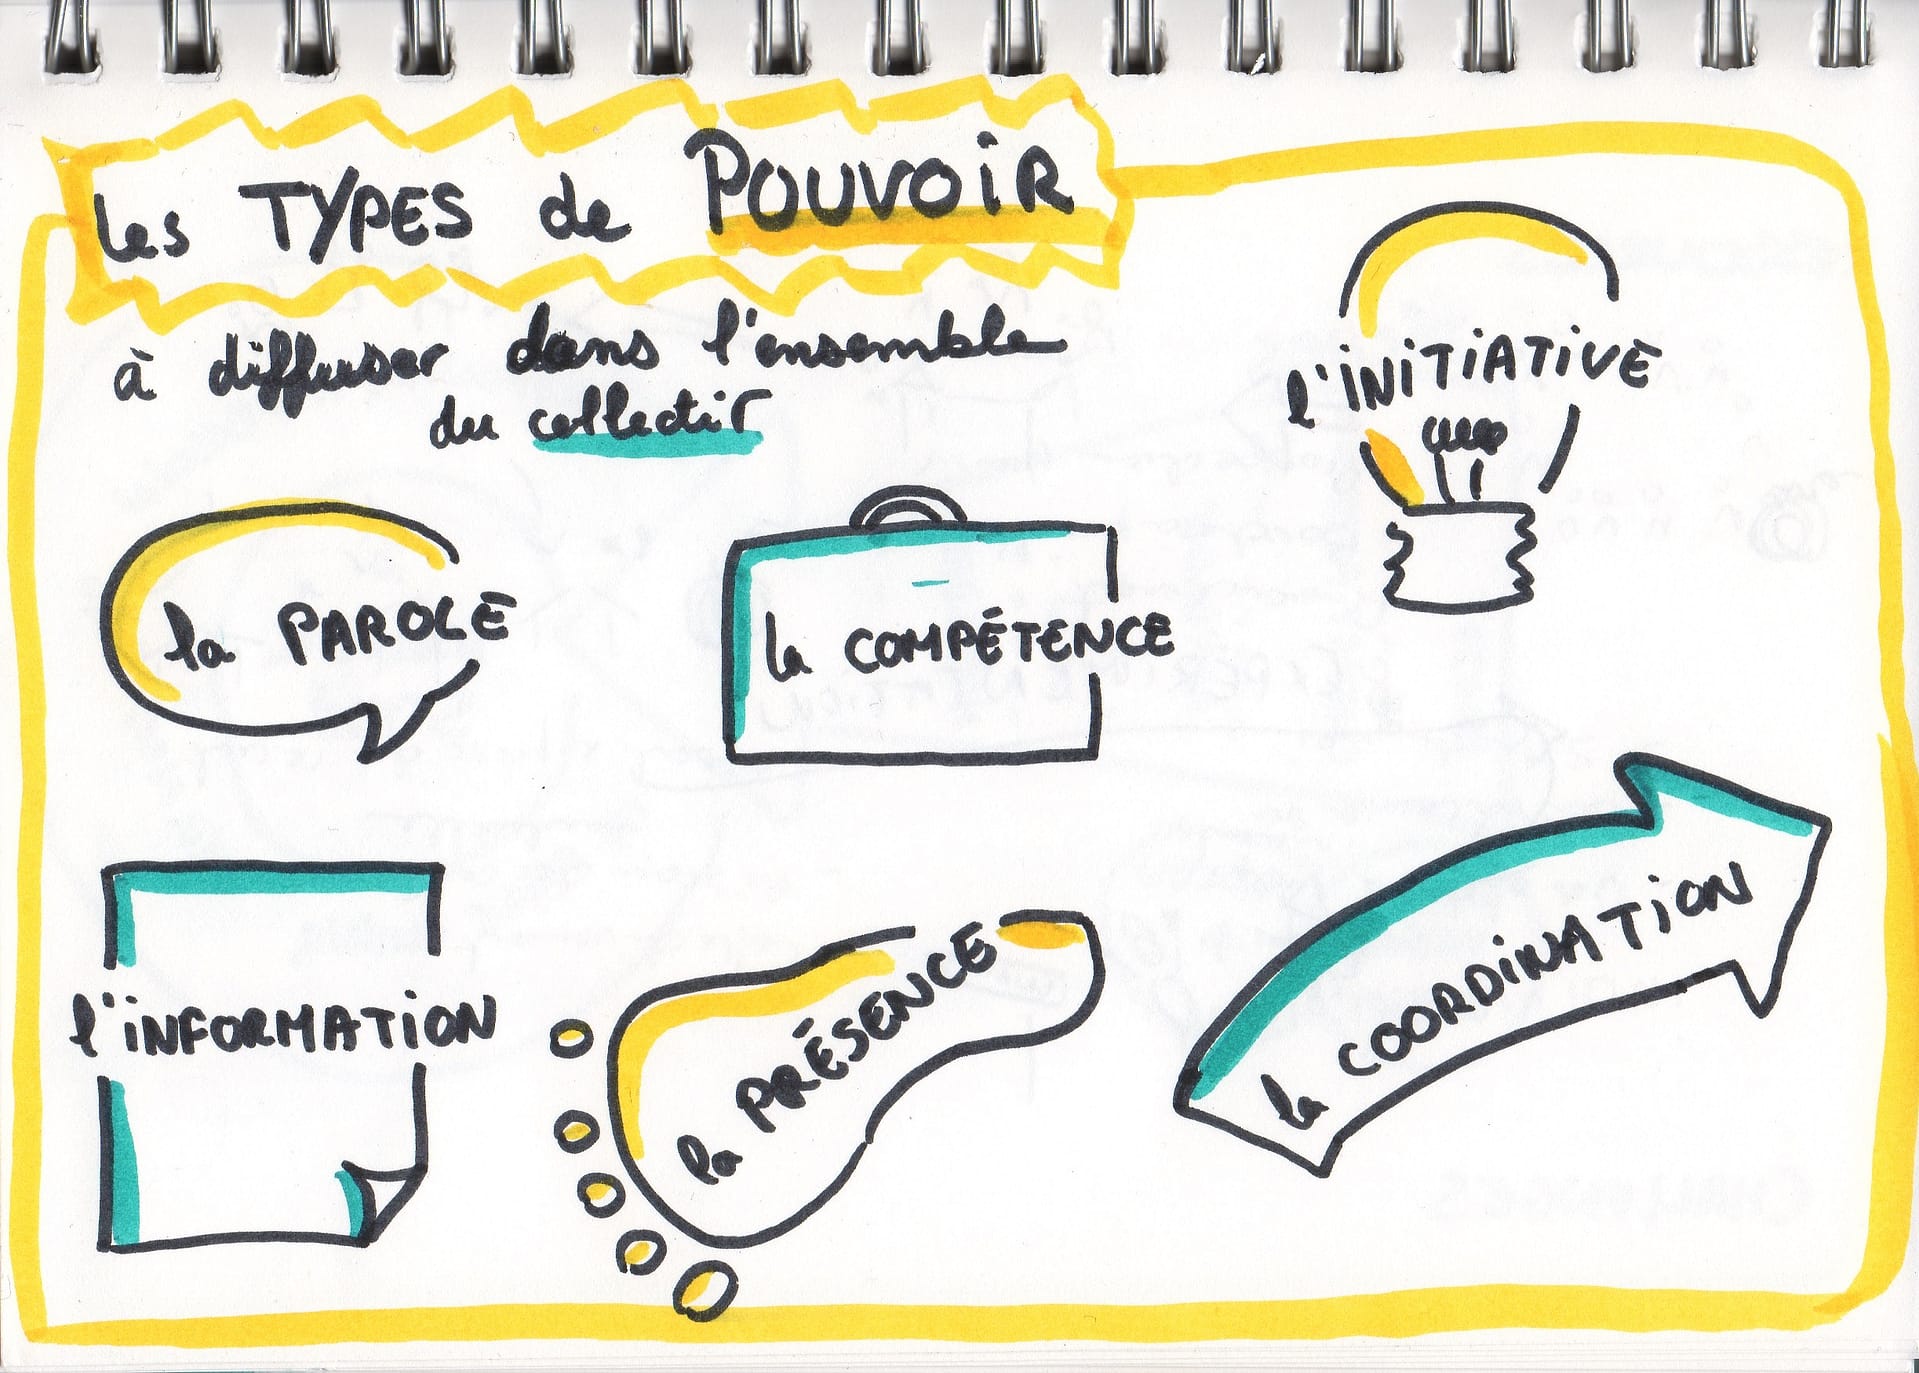 les TYPES de POUVOIR
à diffuser dans l'ensemble
du collectif
l'INITIATIVE
la PAROLE
la COMPÉTENCE
l'INFORMATION
la PRÉSENCE
la COORDINATION